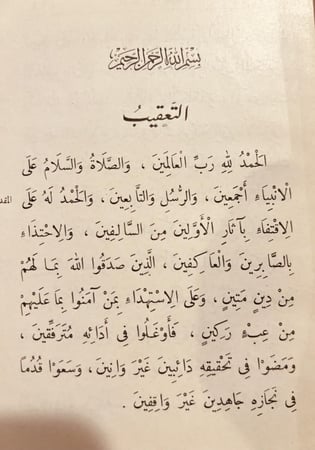 بسم الله الرحمن الرحيم
التَّعقِيبُ
الحَمْدُ لِلّهِ رَبِّ العَالَمِينَ ، وَالصَّلَاةُ وَالسَّلَامُ عَلَى
الْانْبِيَاءِ أَجْمَعِينَ ، وَالرُّسُلِ وَالتَّابِعِينَ ، وَالحَمْدُ لَهُ عَلَى
الِاقْتِفَاءِ بِآثَارِ الأَوَّلِينَ مِنَ السَّالِفِينَ ، وَالِاحْتِذَاءِ
بِالصَّابِرِينَ وَالعَاكِفِينَ ، الَّذِينَ صَدَقُوا اللّهَ بِمَا لَهُمْ
مِنْ دِينٍ مَتِينٍ ، وَعَلَى الِاسْتِهْدَاءِ بِمَنْ آمَنُوا بِمَا عَلَيْهِمْ
مِنْ عِبْءٍ رَكِينٍ ، فَأَوْغَلُوا فِى أَدَائِهِ مُتَرَفِّقِينَ ،
وَمَضَوْا فِى تَحْقِيقِهِ دَائِبِينَ غَيْرَ وَانِينَ ، وَسَعَوْا قُدُمًا
فِى نَجَازِهِ جَاهِدِينَ غَيْرَ وَاقِفِينَ .